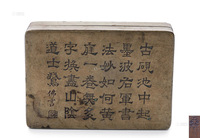 古硯池中起
墨波右軍書
法妙如何黃
庭一卷無多
字換盡山陰
道士鵞